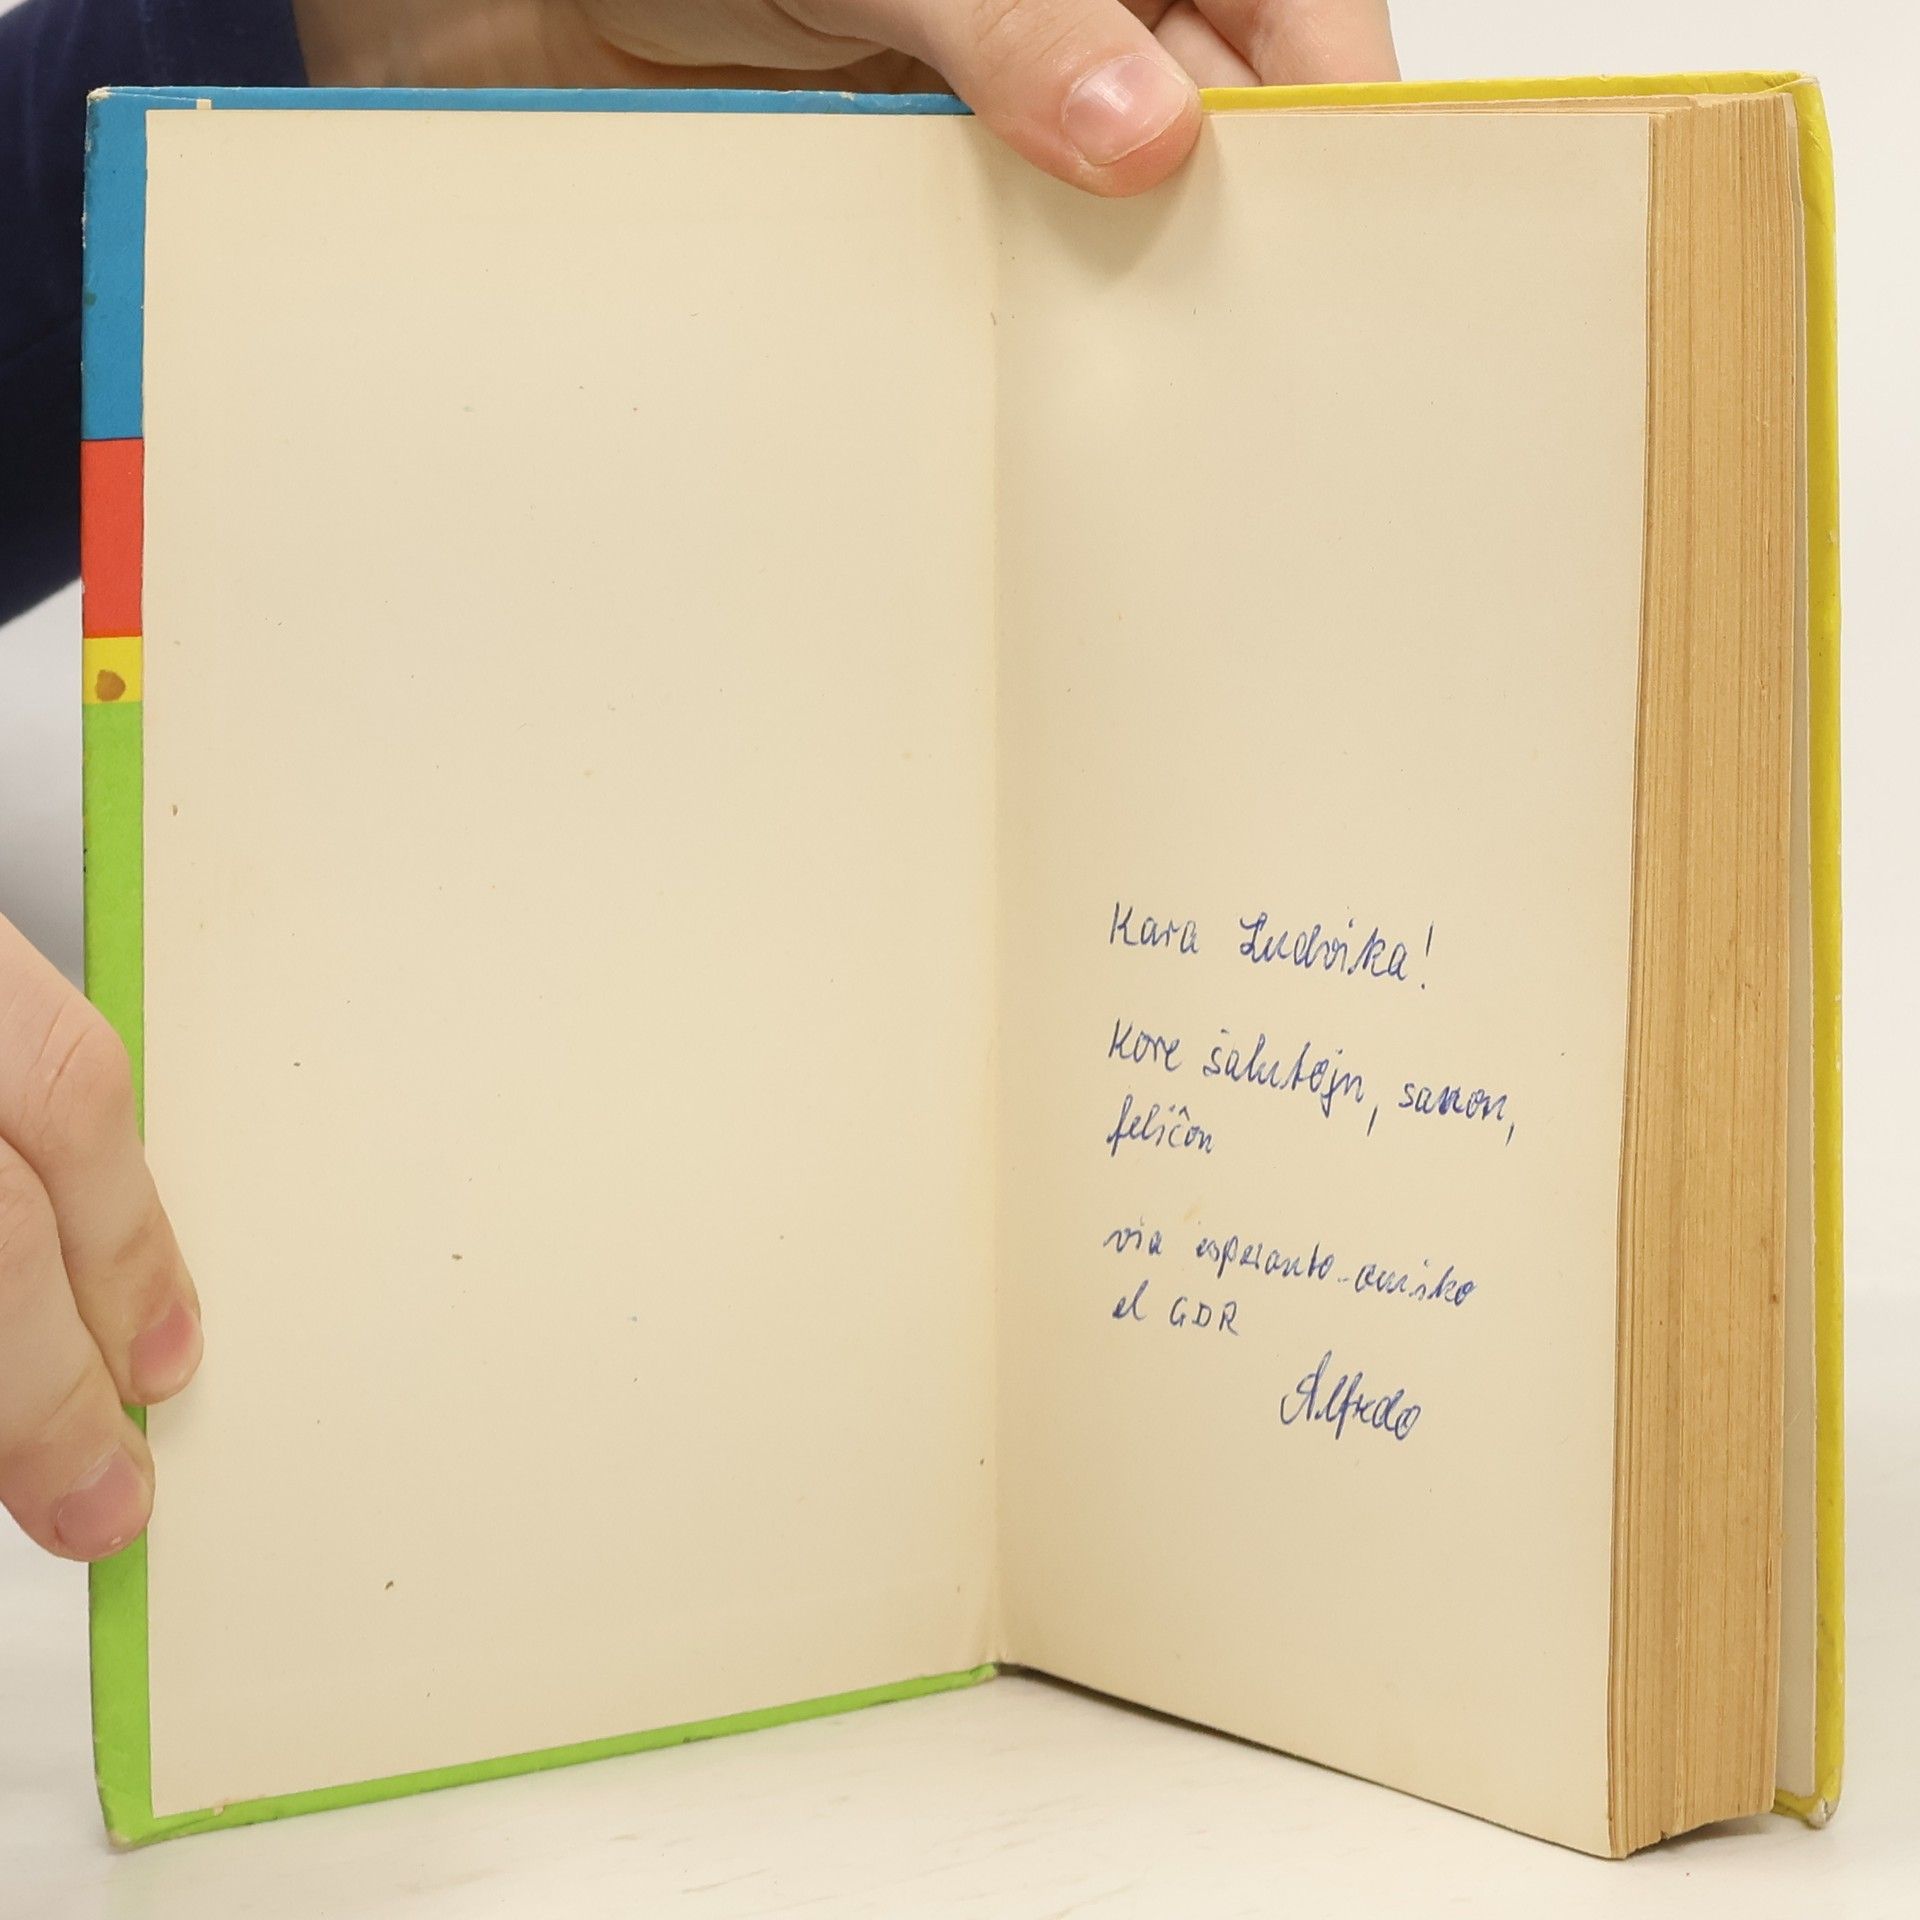 Kara Ludvika!
Kore ŝalutojn, sanon,
feliĉon
via esperanto-amiko
el GDR
Alfredo